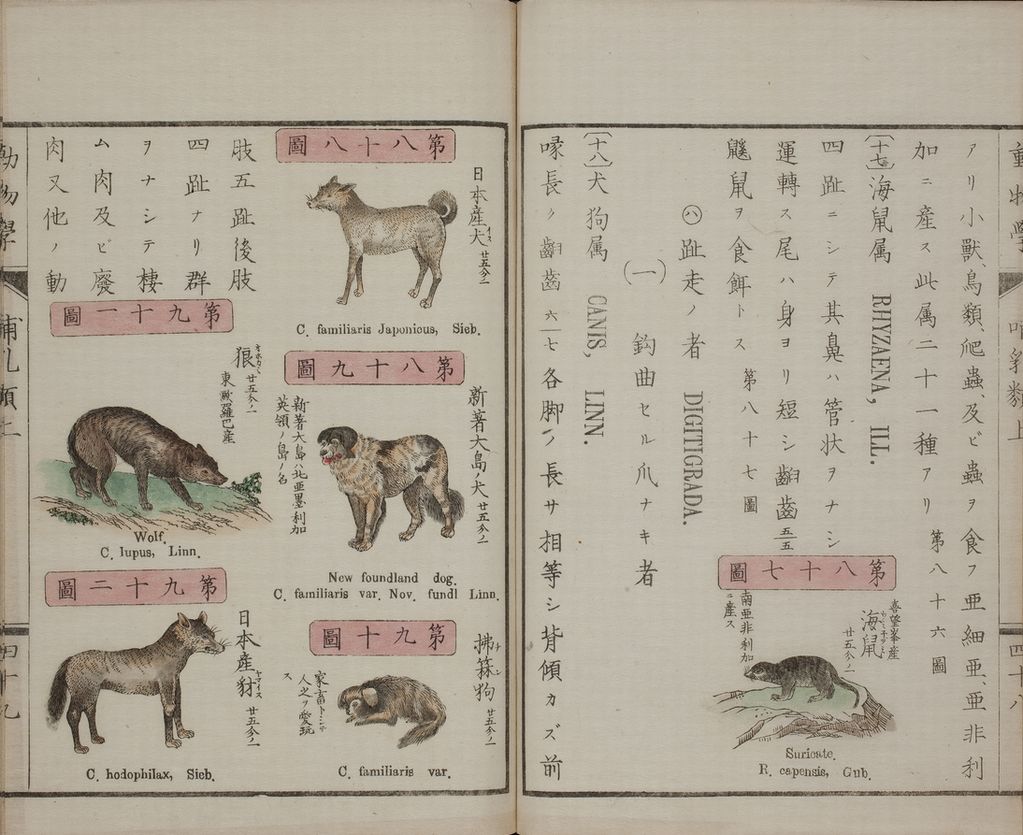 アリ小獣、鳥類、爬蟲、及ビ蟲ヲ食フ亜細亜、亜非利
加ニ産ス此属二十一種アリ 第八十六圖
〔十七〕海鼠属 RHYZAENA, ILL.
四趾ニシテ其鼻ハ管状ヲナシ
運轉ス尾ハ身ヨリ短シ齟齒 五|五
鼷鼠ヲ食餌トス 第八十七圖
第八十七圖
喜望峯産
海鼠
廿五分ノ一
南亜非利加
ニ産ス
Suricate.
R. capensis, Gub.
㋩趾走ノ者 DIGITIGRADA.
(一) 鈎曲セル爪ナキ者
〔十八〕犬狗属 CANIS, LINN.
喙長ク齟齒 六|七 各脚ノ長サ相等シ背傾カズ前
四十八
第八十八圖
日本産犬 イヌ 廿五分ノ一
C. familiaris Japonicus, Sieb.
第八十九圖
新著大島ノ犬 廿五分ノ一
新著大島ハ北亜墨利加
英領ノ島ノ名
New foundland dog.
C. familiaris var. Nov. fundl Linn.
第九十圖
狗 チン 廿五分ノ一
家畜トシテ
人之ヲ愛玩
ス
C. familiaris var.
肢五趾後肢
四趾ナリ群
ヲナシテ棲
ム肉及ビ廢
肉又他ノ動
第九十一圖
狼 オホカミ 廿五分ノ一
東歐羅巴産
Wolf.
C. lupus, Linn.
第九十二圖
日本産豺 ヤマイヌ 廿五分ノ一
C. hodophilax, Sieb.
動物學
哺乳類上
四十九